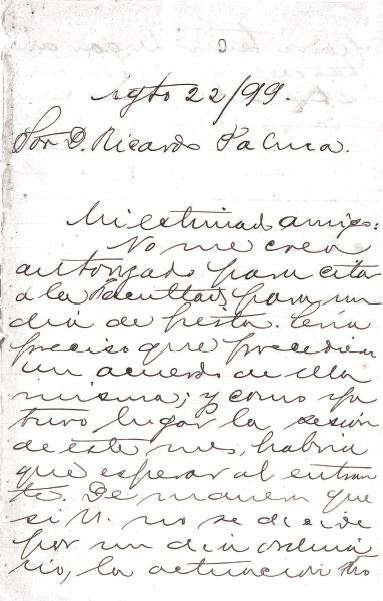 Agto 22/99.
Sor D. Ricardo Palma.
Mi estimado amigo:
No me creo
autorizado para citar
a la Facultad para un
día de fiesta. Sería
preciso que procediera
un acuerdo de ella
misma; y como ya
tuvo lugar la sesión
de este mes, habría
que esperar al entran
te. De manera que
si U. no se decide
por un día ordina
rio, la actuación